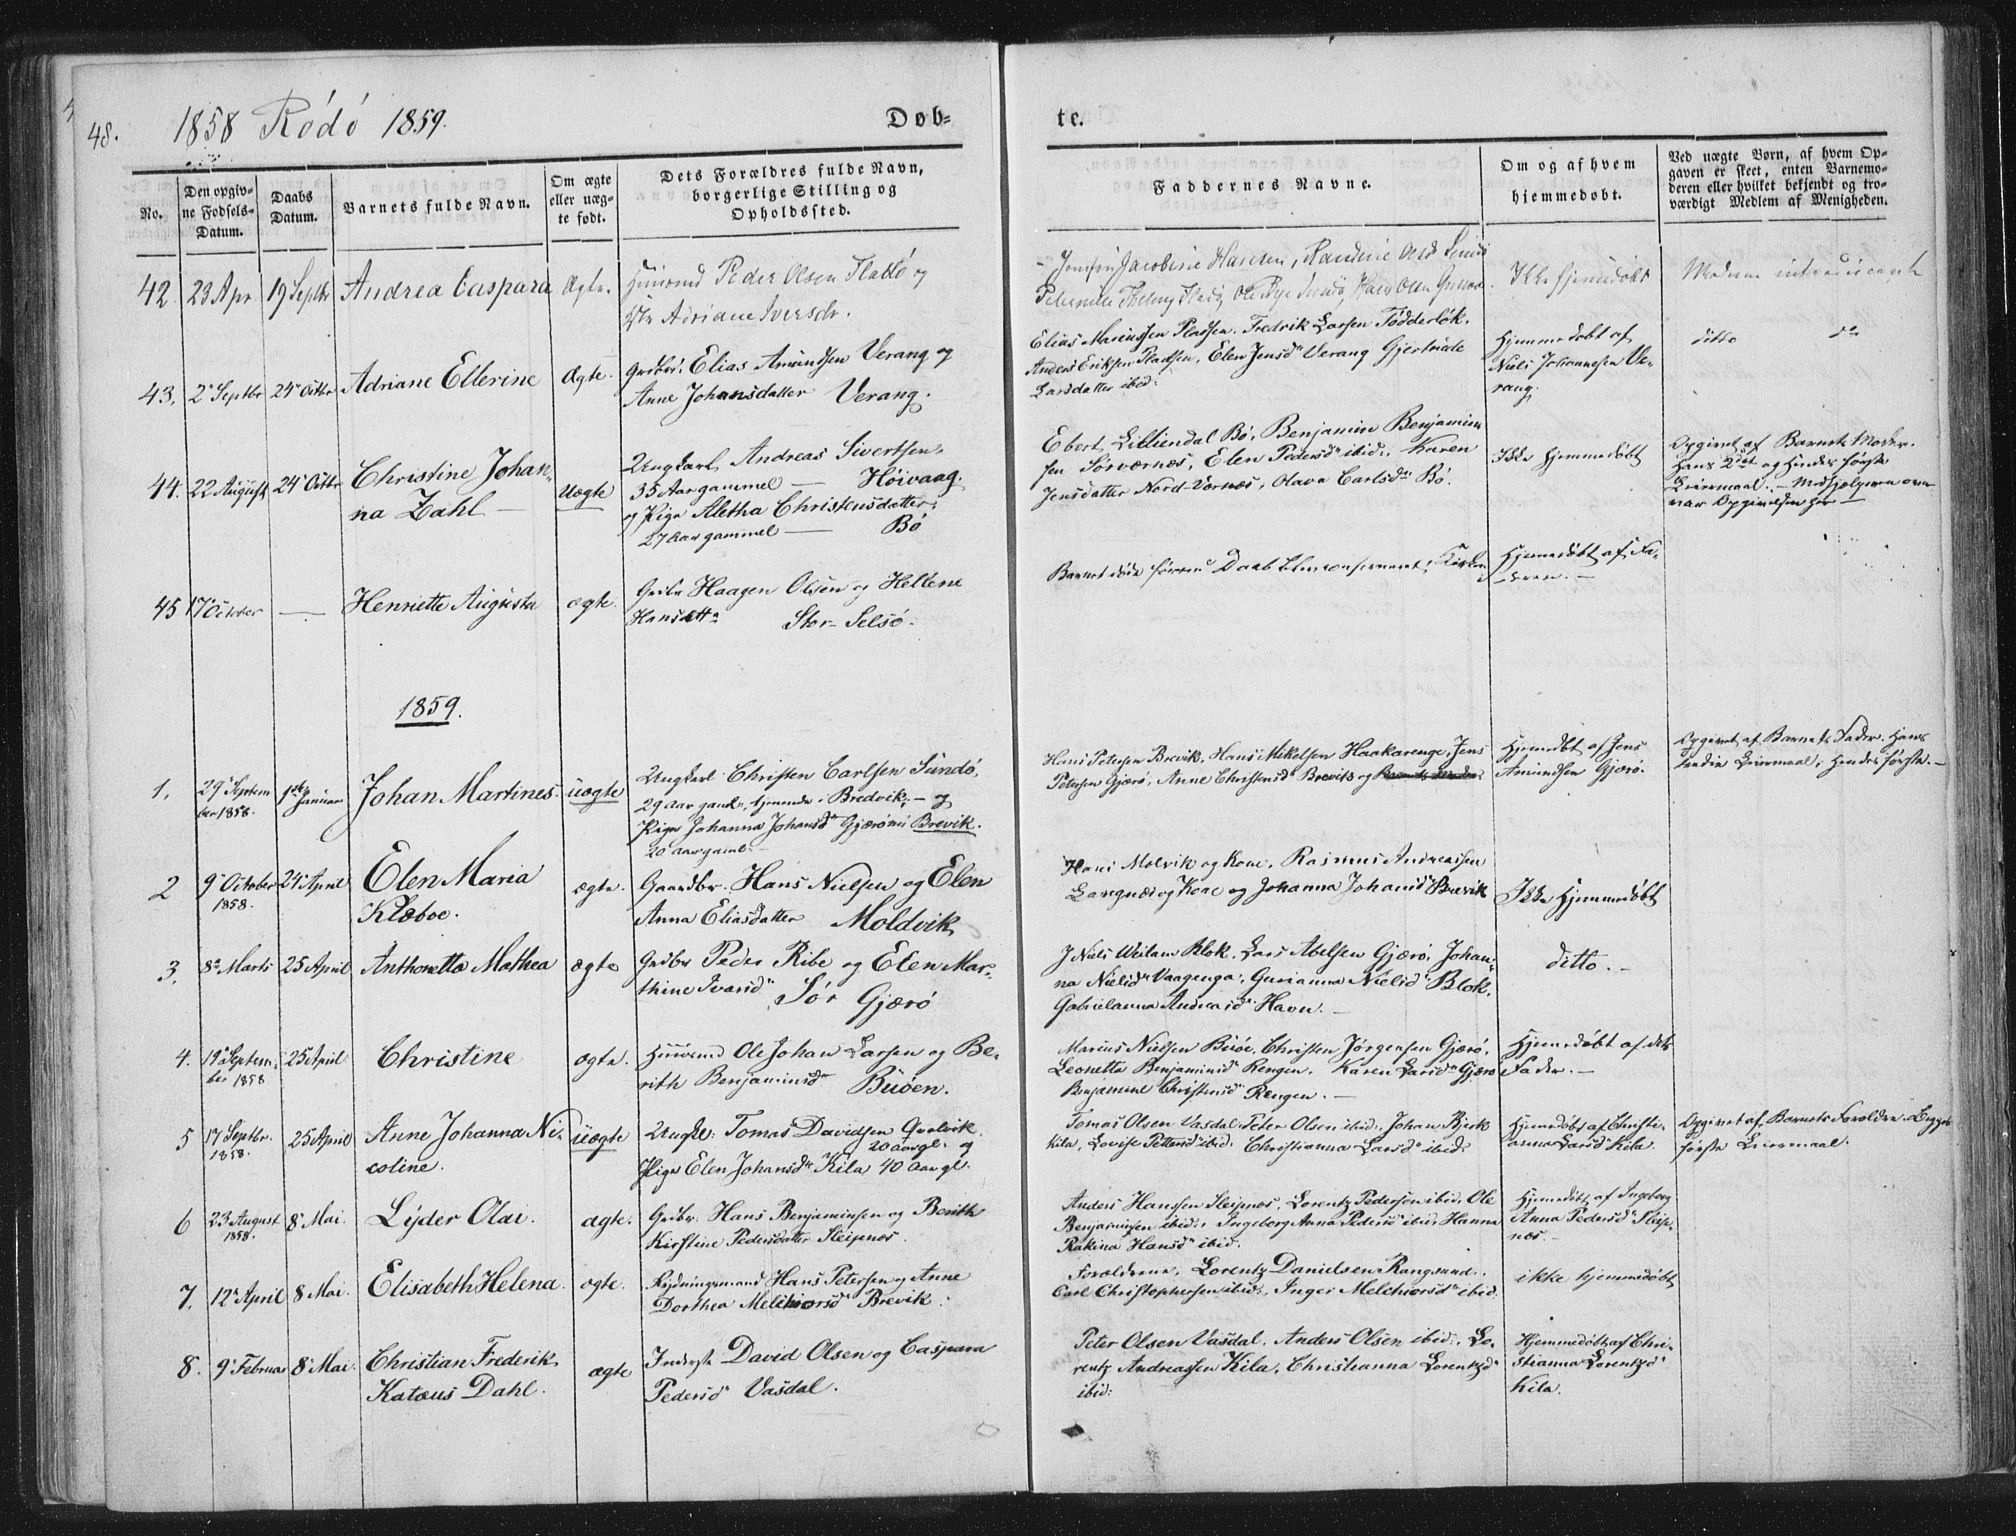 48.
1858 Rödö 1859.
Døb-
te.
No.
Den opgiv-
ne Fødsels-
Datum.
Daabs
Datum.
Barnets fulde Navn.
Om ægte
eller uæg-
te født.
Dets Forældres fulde Navn,
borgerlige Stilling og
Opholdssted.
Faddernes Navne.
Om og af hvem
hjemmedøbt.
Ved uægte Børn, af hvem Op-
gaven er skeet, enten Barnemo-
deren eller hvilket bekjendt og tro-
værdigt Medlem af Menigheden.
42. 23 Apr 19 Septbr Andrea Caspara Ægte.
Huusmd Peder Olsen og
Adriane Iversdr.
Jacobine Hansen,
Ikke hjemmedøbt
43. 2 Septbr 24 Octbr Adriane Ellerine Ægte.
Grdbr. Elias Amundsen Verang og
Anne Johansdatter Verang.
Elias Mariussen Pladsen. Fredrik Larsen Tödderlök.
Anders Eriksen Pladsen, Elen Jensdr Verang Gjertrude
Larsdatter ibid:
Hjemmedøbt af
Niels Johannesen Ve-
rang.
ditto do
44. 22 August 24 Octbr
Christine Johan-
na Zahl
Uægte
Ungkarl Andreas Sivertsen
35 Aar gammel — Höivaag.
og Pige Aletha Christensdatter
27 Aar gammel — Bö
Ebert Lilliendal Bö, Benjamin Benjamin-
sen Sörvernæs, Elen Pedersdr ibid:, Karen
Jensdatter Nord-Vernæs, Olava Carlsdr Bö.
Ikke hjemmedöbt
Opgivet af Barnets Moder.
Hans 2det og Hendes förste
Leiermaal. — Medhjælperen
var Opgivelsen her —
45 17 October — Henriette Augusta ægte.
Grdbr Haagen Olsen og Hellene
Hansdttr Stor-Selsö.
Barnet døde førend Daab i Kirken
Hjemmedøbt af Fa-
deren. —
1859.
1. 29 Septem
ber 1858.
1ste
Januar
Johan Martines. uægte
Ungkarl Christen Carlsen Sundö,
29 Aar gaml., hjemme i Bredvik, — og
Pige Johanna Johansdr Gjærö Brevik.
20 Aar gaml. —
Hans Petersen Brevik, Hans Mikelsen Haakarenge, Jens
Petersen Gjærö, Anne Christensdr Brevik og
Hjemmedöbt af Jens
Amundsen Gjærö.
Opgivet af Barnets Fader. Hans
Leiermaal, Hendes förste. —
2 9 October
1858.
24 April
Elen Maria
Klæboe.
ægte.
Gaardbr. Hans Nielsen og Elen
Anna Eliasdatter Moldvik
Hans Molvik og Kone, Rasmus Andreassen
Langnæs og Kone og Johanna Johansdr Brevik
Ikke hjemmedöbt
3. 8 Marts 25 April Anthonetta Mathea ægte
Grdbr Peder Ribe og Elen Mar-
thine Ivarsdr Sör Gjærö
J Niels Weilam Blok, Lars Abelsen Gjærö, Johan-
na Nielsdr Vaagenga, Gurianna Nielsdr Blok,
Gabrielanna Andreasdr Havn. —
ditto. —
4. 19 Septem-
ber 1858
25 April Christine ægte.
Huusmd Ole Johan Larsen og Be-
rith Benjaminsdr Buöen.
Marius Nielsen Buöe, Christen Jörgensen Gjærö,
Leonetta Benjaminsdr Rengen. Karen Larsdr Gjærö
Benjamine Christensdr Rengen. —
Hjemmedöbt af dets
Fader. —
5 17 Septbr.
1858.
25 April
Anne Johanna Ni-
coline.
uægte
Ungkl. Tomas Davidsen
20 aar gl. og
Pige Elen Johansdr Kila 40 Aar gl.
Tomas Olsen Vasdal Peter Olsen ibid: Johan Bjerk
Kila, Lovise Pettersdr ibid: Christianna Larsdr ibid:
Hjemmedöbt af Christi-
anna Larsdr Kila.
Opgivet af Barnets Forældre. Begges
förste Leiermaal.
6 23 August
1858.
8 Mai. Lyder Olai. ægte.
Grdbr. Hans Benjaminsen og Berith
Kirstine Pedersdatter Sleipnæs.
Anders Hanssen Sleipnæs, Lorentz Pedersen ibid: Ole
Benjaminsen ibid:, Ingeborg Anna Pedersdr ibid: Hanna
Rakina Hansdr ibid.
Hjemmedöbt af Ingeborg
Anna Pedersdr Sleip-
næs. —
7. 12 April 8 Mai. Elisabeth Helena. ægte.
Rydningsmand Hans Petersen og Anne
Dorthea Melchiorsdr Brevik.
Forældrene, Lorentz Danielsen Rangsund.,
Carl Christophersen ibid:, Inger Melchiorsdr ibid.
ikke hjemmedöbt
8. 9 Februar 8 Mai.
Christian Frederik
Katæus Dahl.
ægte
Inderste David Olsen og Caspara
Pedersdr Vasdal.
Peter Olsen Vasdal. Anders Olsen ibid:, Lo-
rentz Andreassen Kila, Christianna Lorentzdr
ibid:
Hjemmedöbt af Chri-
stianna Lorentzdr
Kila.